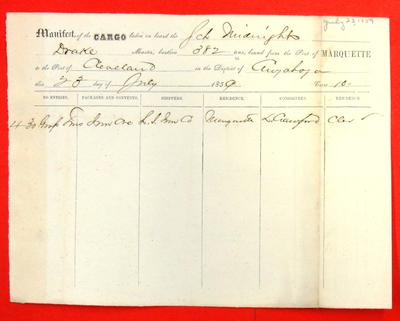 July 23, 1859
Manifest of the CARGO laden on board the Sch Midnight
Drake Master, burthen 382 tons, bound from the Port of MARQUETTE
to the Port of Cleveland in the District of Cuyahoga
this 23 day of July 1859
NO. ENTRIES. PACKAGES AND CONTENTS. SHIPPERS. RESIDENCE. CONSIGNEES. RESIDENCE.
430 Tons Iron Ore L. S. Iron Co Marquette Crawford Clev